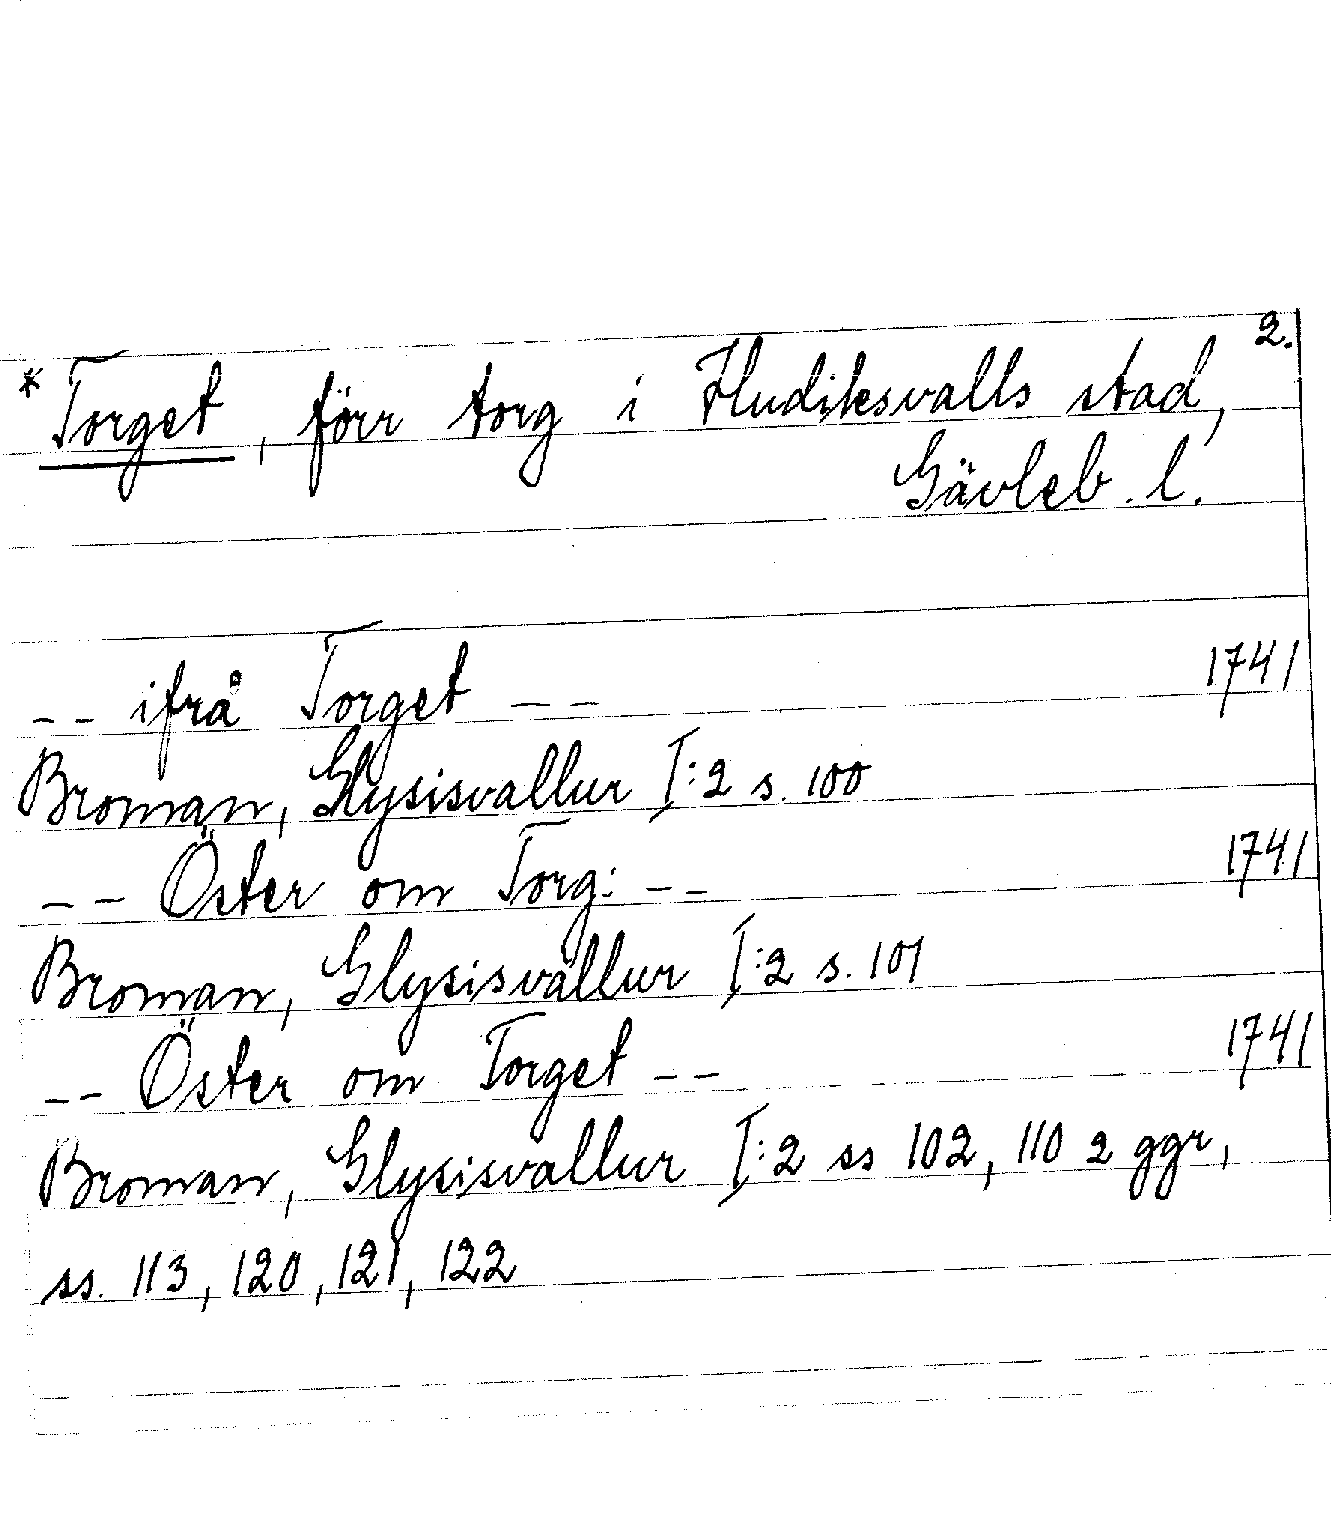 2.
* Torget, förr torg i Hudiksvalls stad,
Gävleb. l.
-- ifrå Torget -- 1741
Broman, Glysisvallur I:2 s. 100
-- Öster om Torg: -- 1741
Broman, Glysisvallur I:2 s. 101
-- Öster om Torget -- 1741
Broman, Glysisvallur I:2 ss 102, 110 2 ggr,
ss. 113, 120, 121, 122